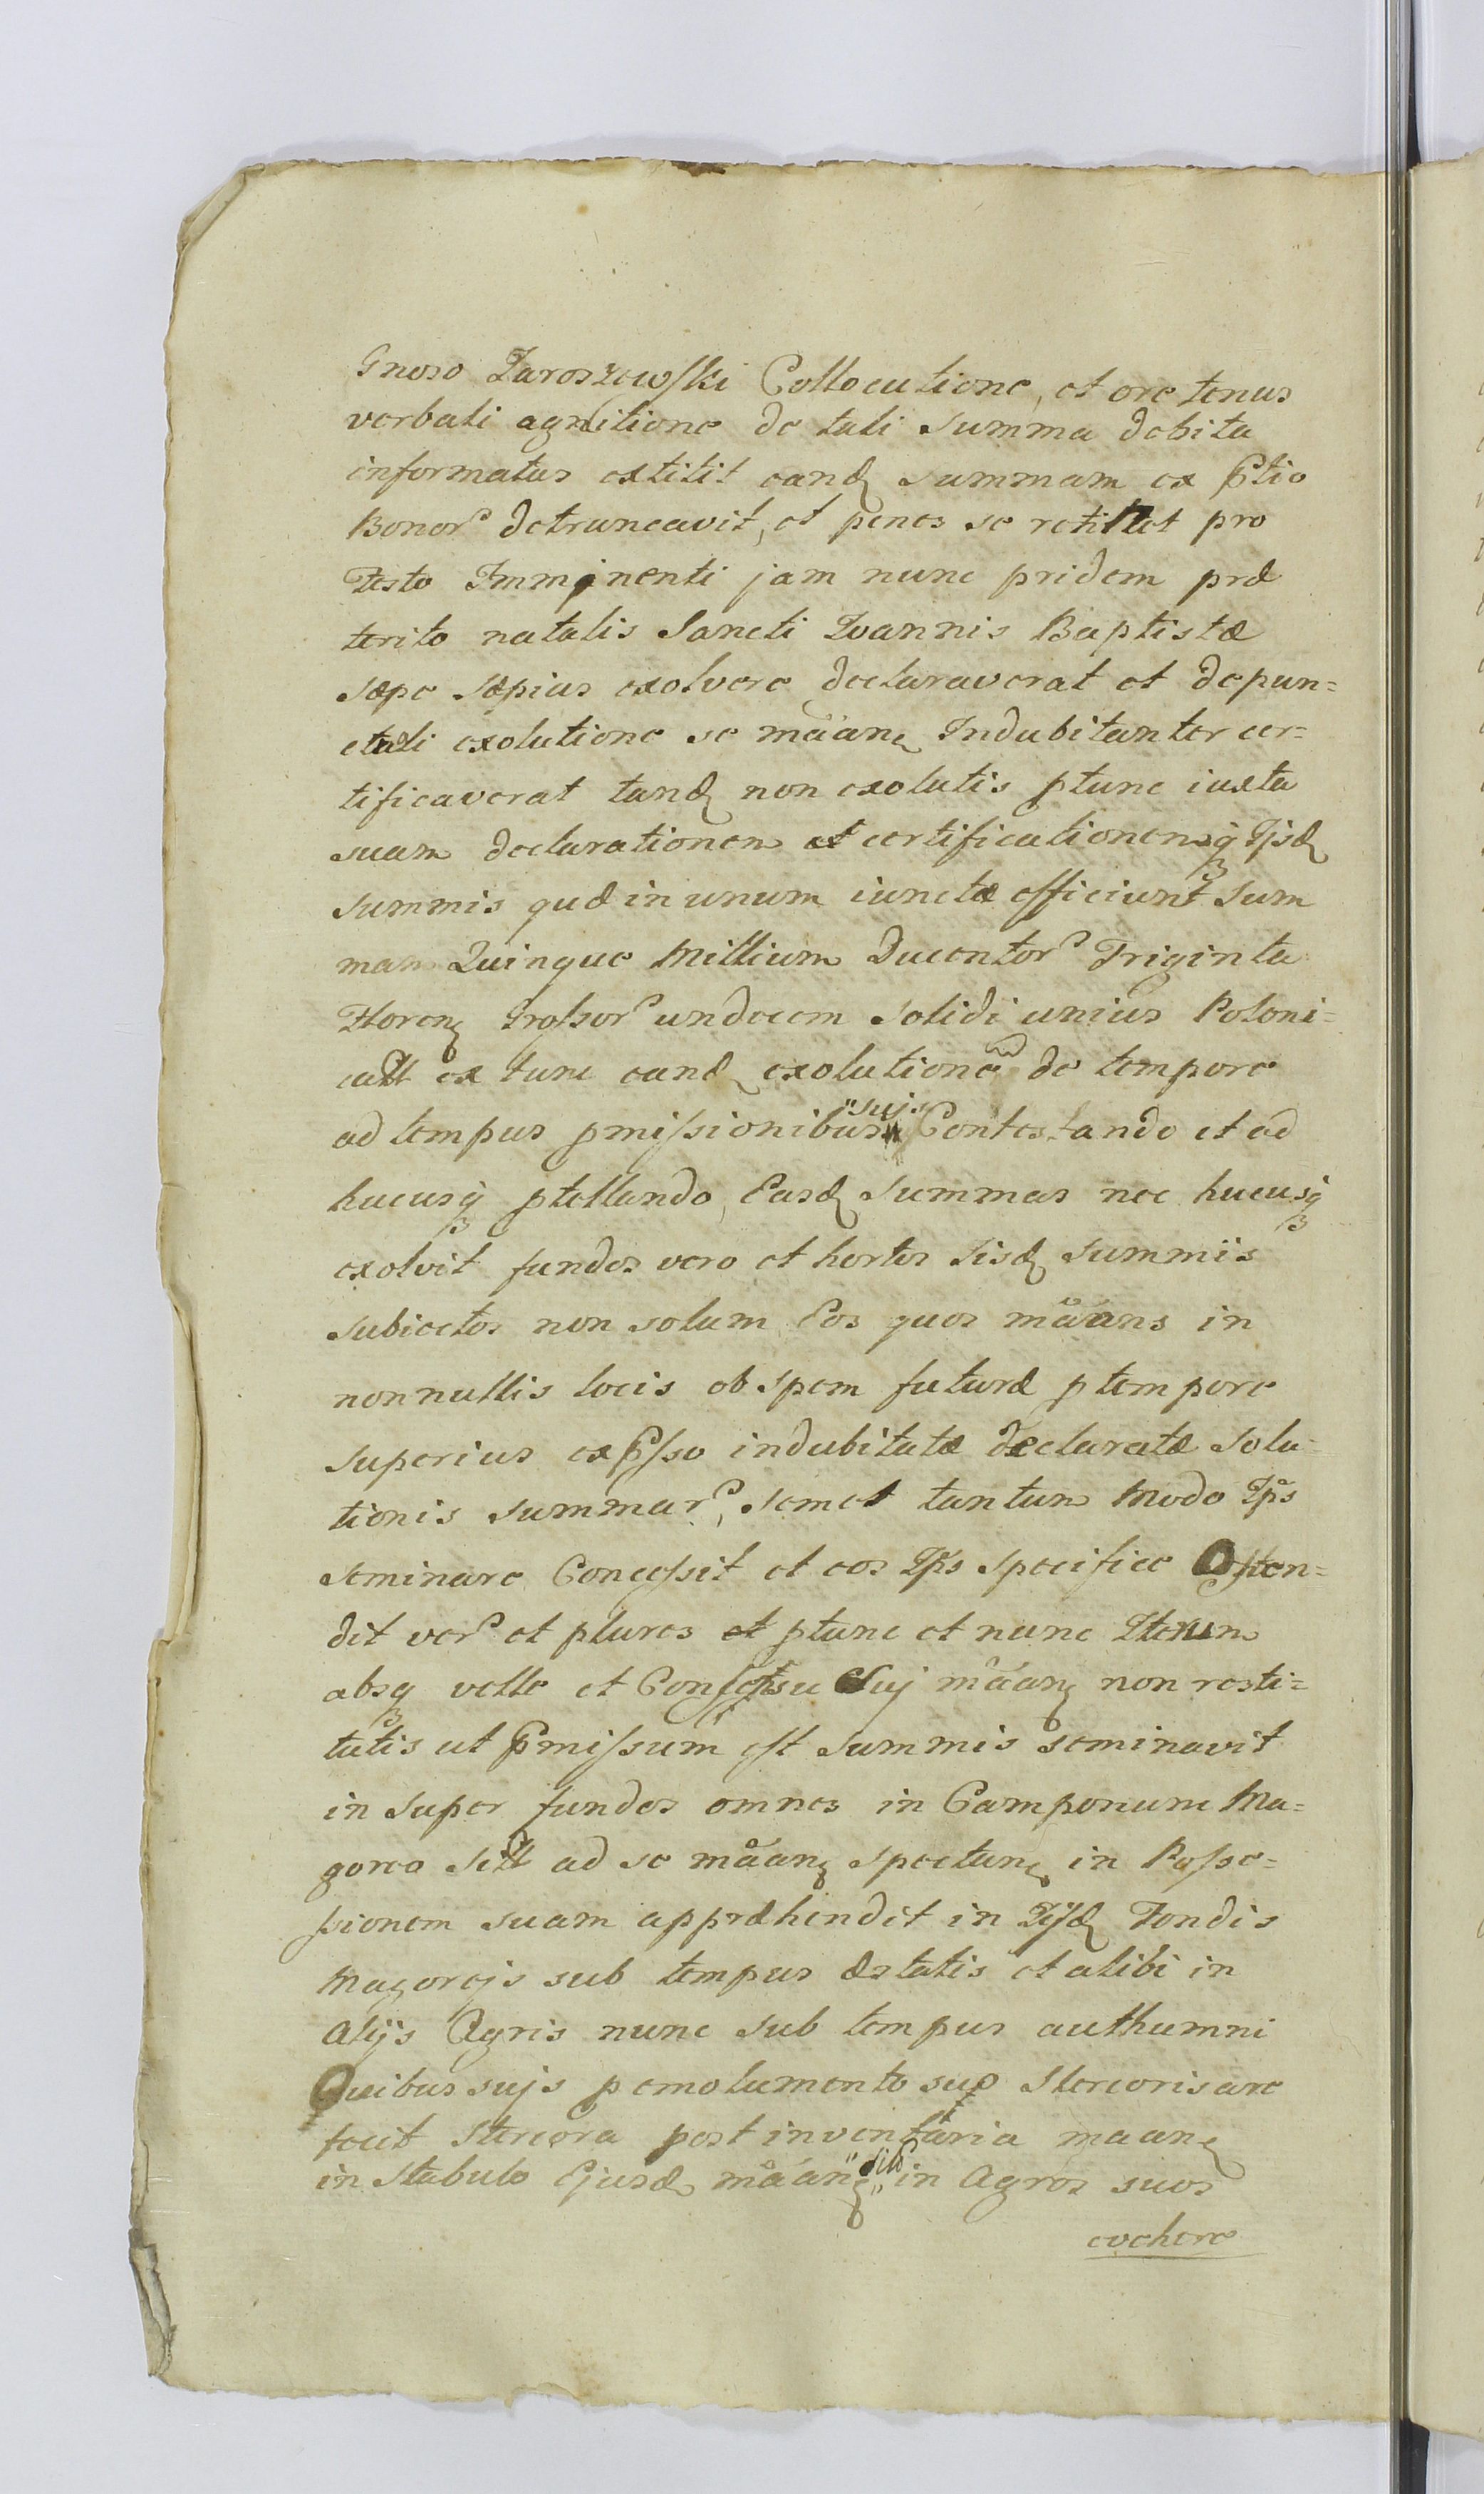 Gnoso Jaroszewski Collocutione, et ore tenus
verbali agnitione de tali Summa debita
informatus extitit eand summam ex ptio
Bonor detruncavit, et penes se retinet pro
Festo Imminenti jam nunc pridem præ
terito natalis Sancti Ioannis Baptistæ
sæpe sæpius exolvere declaraverat et de pun=
ctuali exolutione se mãan Indubitanter cer=
tificaverat tand non exolutis ptunc iuxta
suam declarationem et certificationemq Ijsd
summis quæ in unum iunctæ efficiunt Sum
mam Quinque Millium Ducentor Triginta
Floren Grossor undecem Solidi unius Poloni=
call ex tunc eand exolutionem de tempore
ad tempus pmissionibus suis Contestando et ad
hucusq ptellando, Easd Summas nec hucusq
exolvit fundos vero et hortos Iisd Summiis
subiectos non solum Eos quos mãans in
nonnullis locis ob spem futuræ p tempore
superius expsso indubitatæ declaratæ Solu=
tionis summar, semel tantum modo Ips
seminare Concessit et eos Ips specifice Osten=
dit ver et plures et ptunc et nunc Iterum
absq velle et Consensu Suj mãan non resti=
tutis ut pmissum est Summis seminavit
in super fundos omnes in Camponum Ma=
gorea sill ad se mãan spectan in Posse=
ssionem suam appræhendit in Ijsd Fondis
Magorejs sub tempus æstatis et alibi in
Alijs Agris nunc sub tempus authumni
Quibus sujs p emolumento suo Stercorisare
fecit Stercora post inventaria maan
in Stabulo Ejusd mãan in Agros suos
evehere